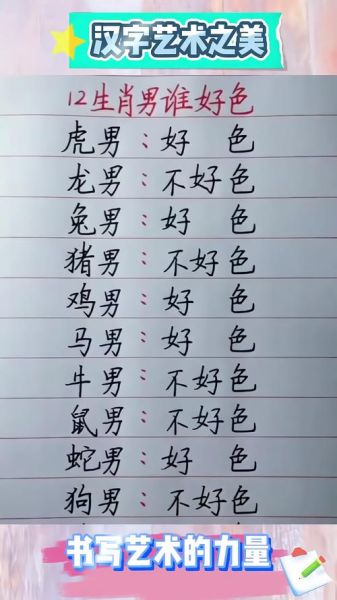 汉字艺术之美
12生肖男谁好色
虎男:好 色
龙男:不好色
兔男:好 色
猪男:不好色
鸡男:好 色
马男:好 色
牛男:不好色
鼠男:不好色
蛇男:好 色
狗男:不好色
书写艺术的力量